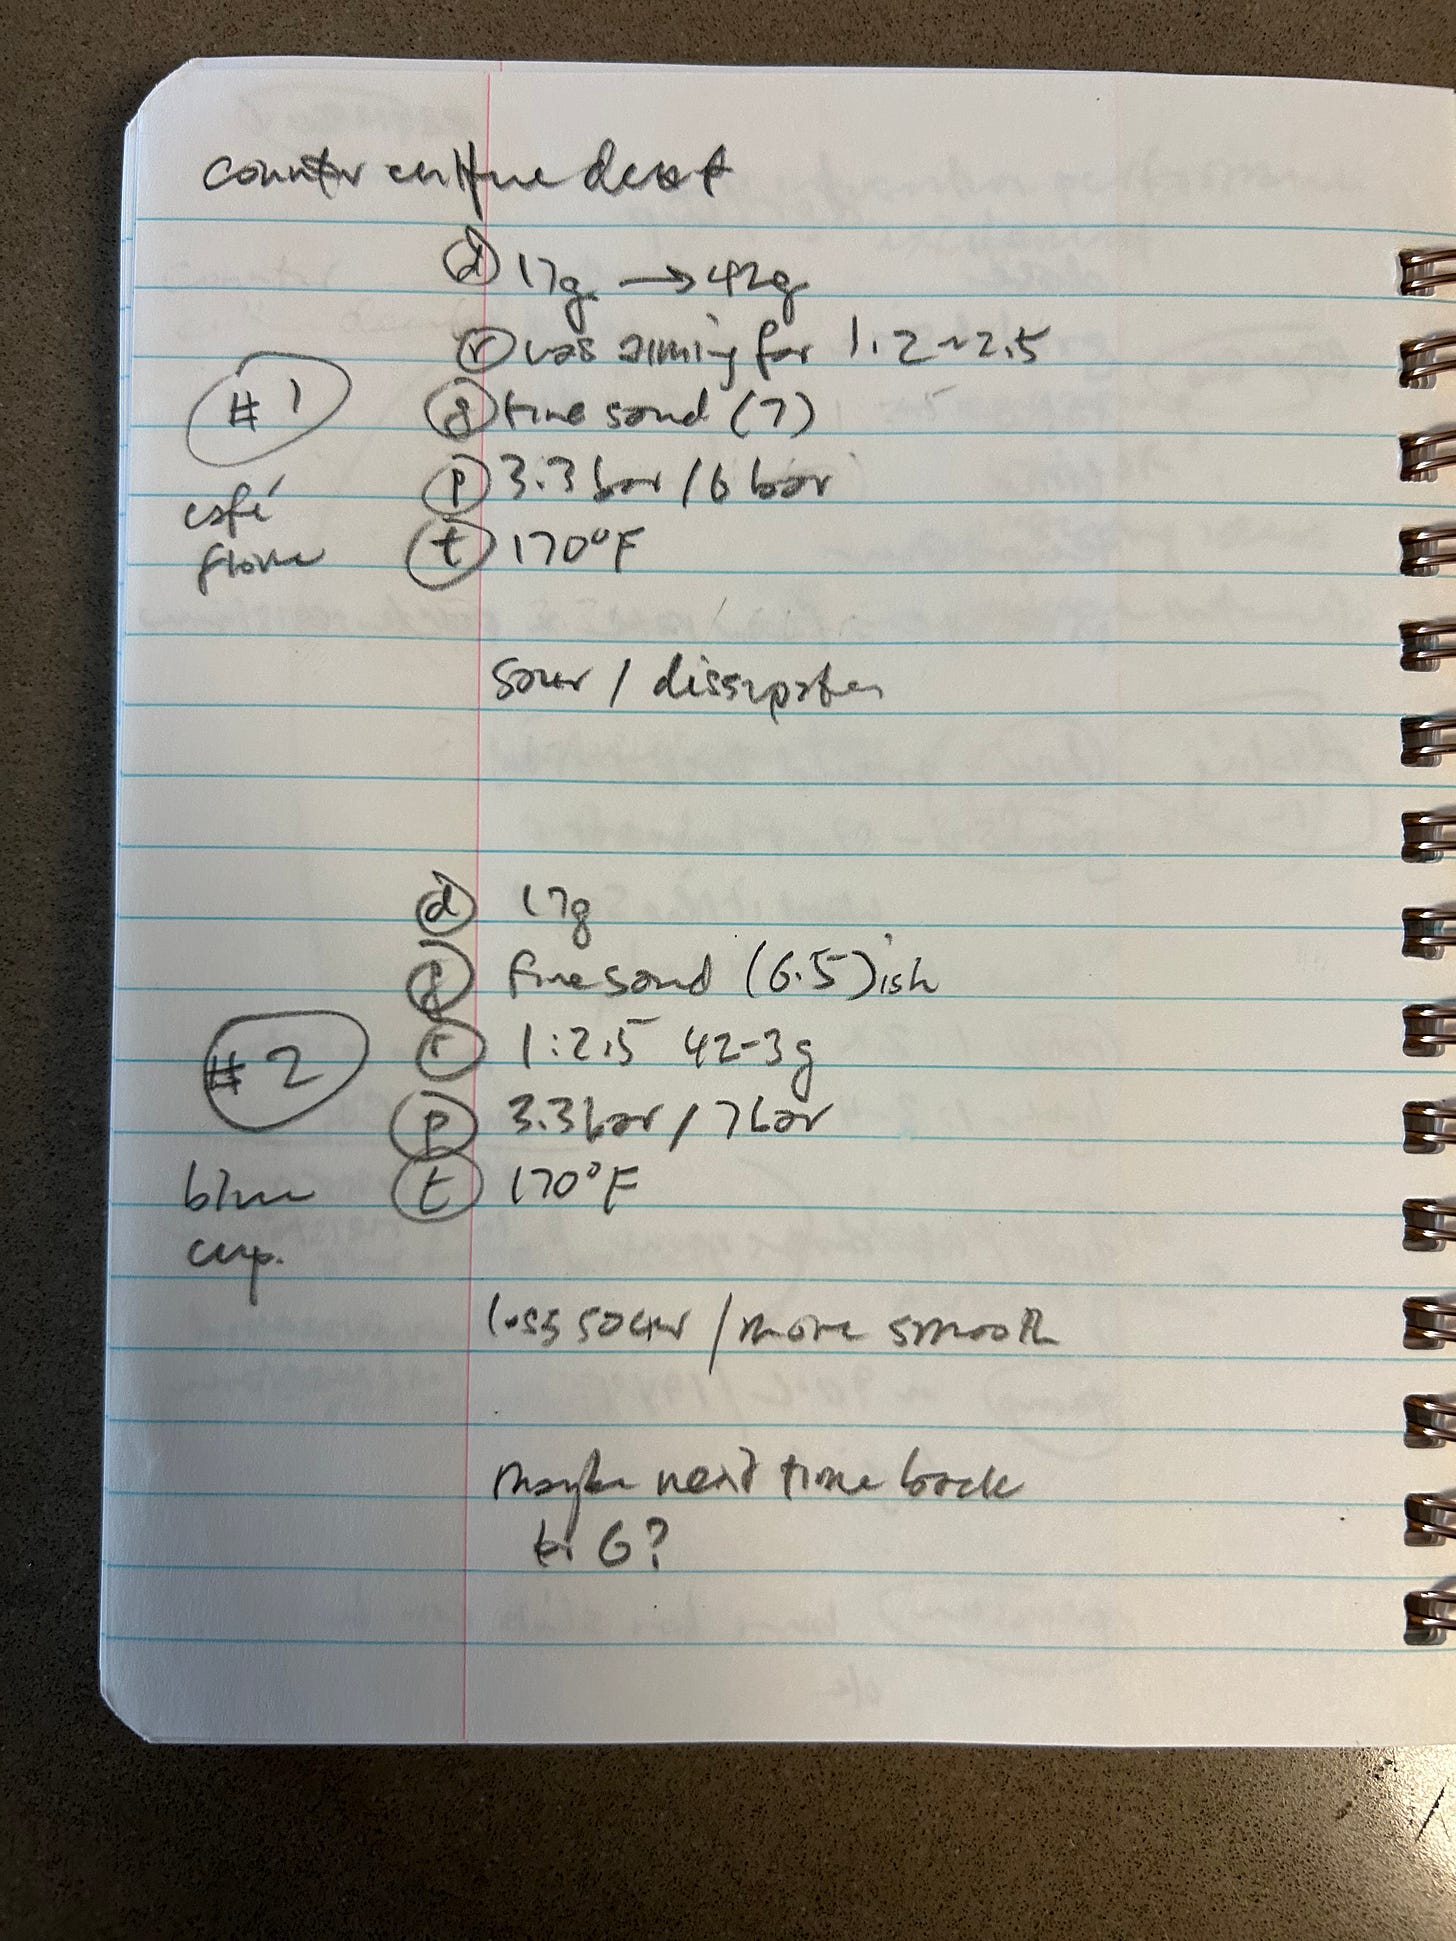 counter culture decaf
(d) 17g → 42g
(r) was aiming for 1:2~2.5
#1
(g) fine sand (7)
(p) 3.3 bar / 6 bar
café
flore
(t) 170°F
sour / dissipates
(d) 17g
(g) fine sand (6.5)ish
#2
(r) 1:2.5 42-3g
(p) 3.3 bar / 7 bar
blue
cup.
(t) 170°F
less sour / more smooth
maybe next time back
to 6?